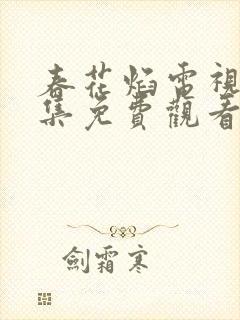 春花焰電視
集免費觀看
劍霜寒